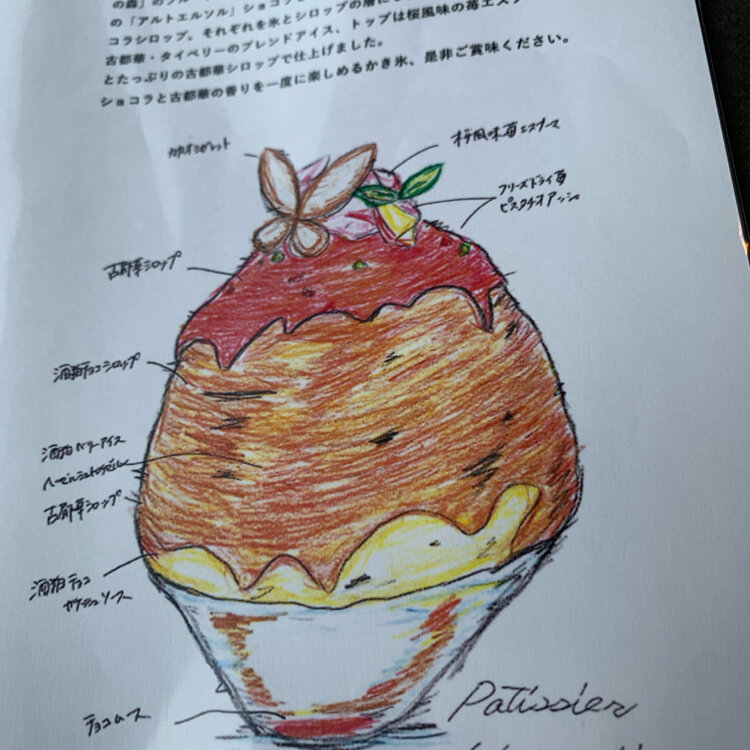 の森」のフルー
の「アルトエルソル」ショコラと
コラシロップ。それぞれを氷とシロップの層に
古都華・タイベリーのブレンドアイス、トップは桜風味の苺エスプ
とたっぷりの古都華シロップで仕上げました。
ショコラと古都華の香りを一度に楽しめるかき氷、是非ご賞味ください。
桜風味苺エスプーマ
フリーズドライ苺
ピスタチオアッシェ
古都華シロップ
酒粕チョコシロップ
酒粕ベリーアイス
古都華シロップ
酒粕チョコ
ガナッシュソース
チョコムース
Patissier